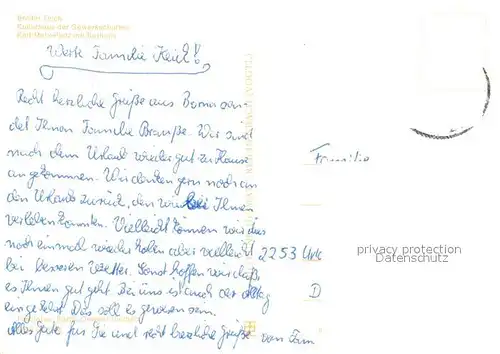 Werte Familie Keil!
Recht herzliche Grüße aus Borna sen-
det Ihnen Familie Branße. Wir sind
nach dem Urlaub wieder gut zu Hause
angekommen. Wir denken gern noch an
den Urlaub zurück, den wir bei Ihnen
verleben konnten. Vielleicht können wir dies
noch einmal wieder holen aber vielleicht
bei besseren Wetter. Sonst hoffen wir daß
es Ihnen gut geht. Bei uns ist auch der Alltag
eingekehrt. Das soll es gewesen sein.
Alles Gute für Sie und recht herzliche Grüße von Fam
Familie
2253
D
privacy protection
Datenschutz